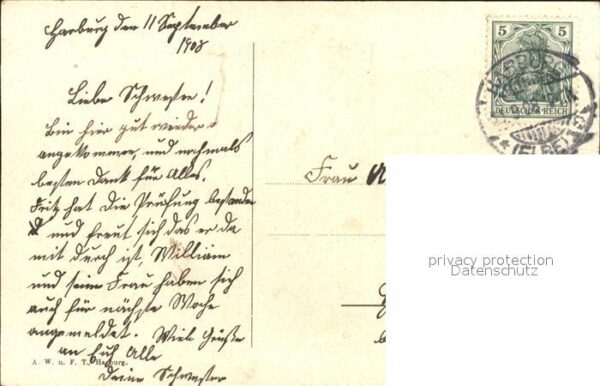 Harburg den 11 September
1908
Liebe Schwester!
Bin hier gut wieder
angekommen, und nochmals
besten Dank für Alles.
Fritz hat die Prüfung bestanden
und freut sich das er da
mit durch ist, William
und seine Frau haben sich
auch für nächste Woche
angemeldet. Viel Grüße
an Euch Alle
Deine Schwester
A. W. u. F. T., Harburg.
5 5
DEUTSCHES REICH
HARBURG
(ELBE)
Frau
privacy protection
Datenschutz